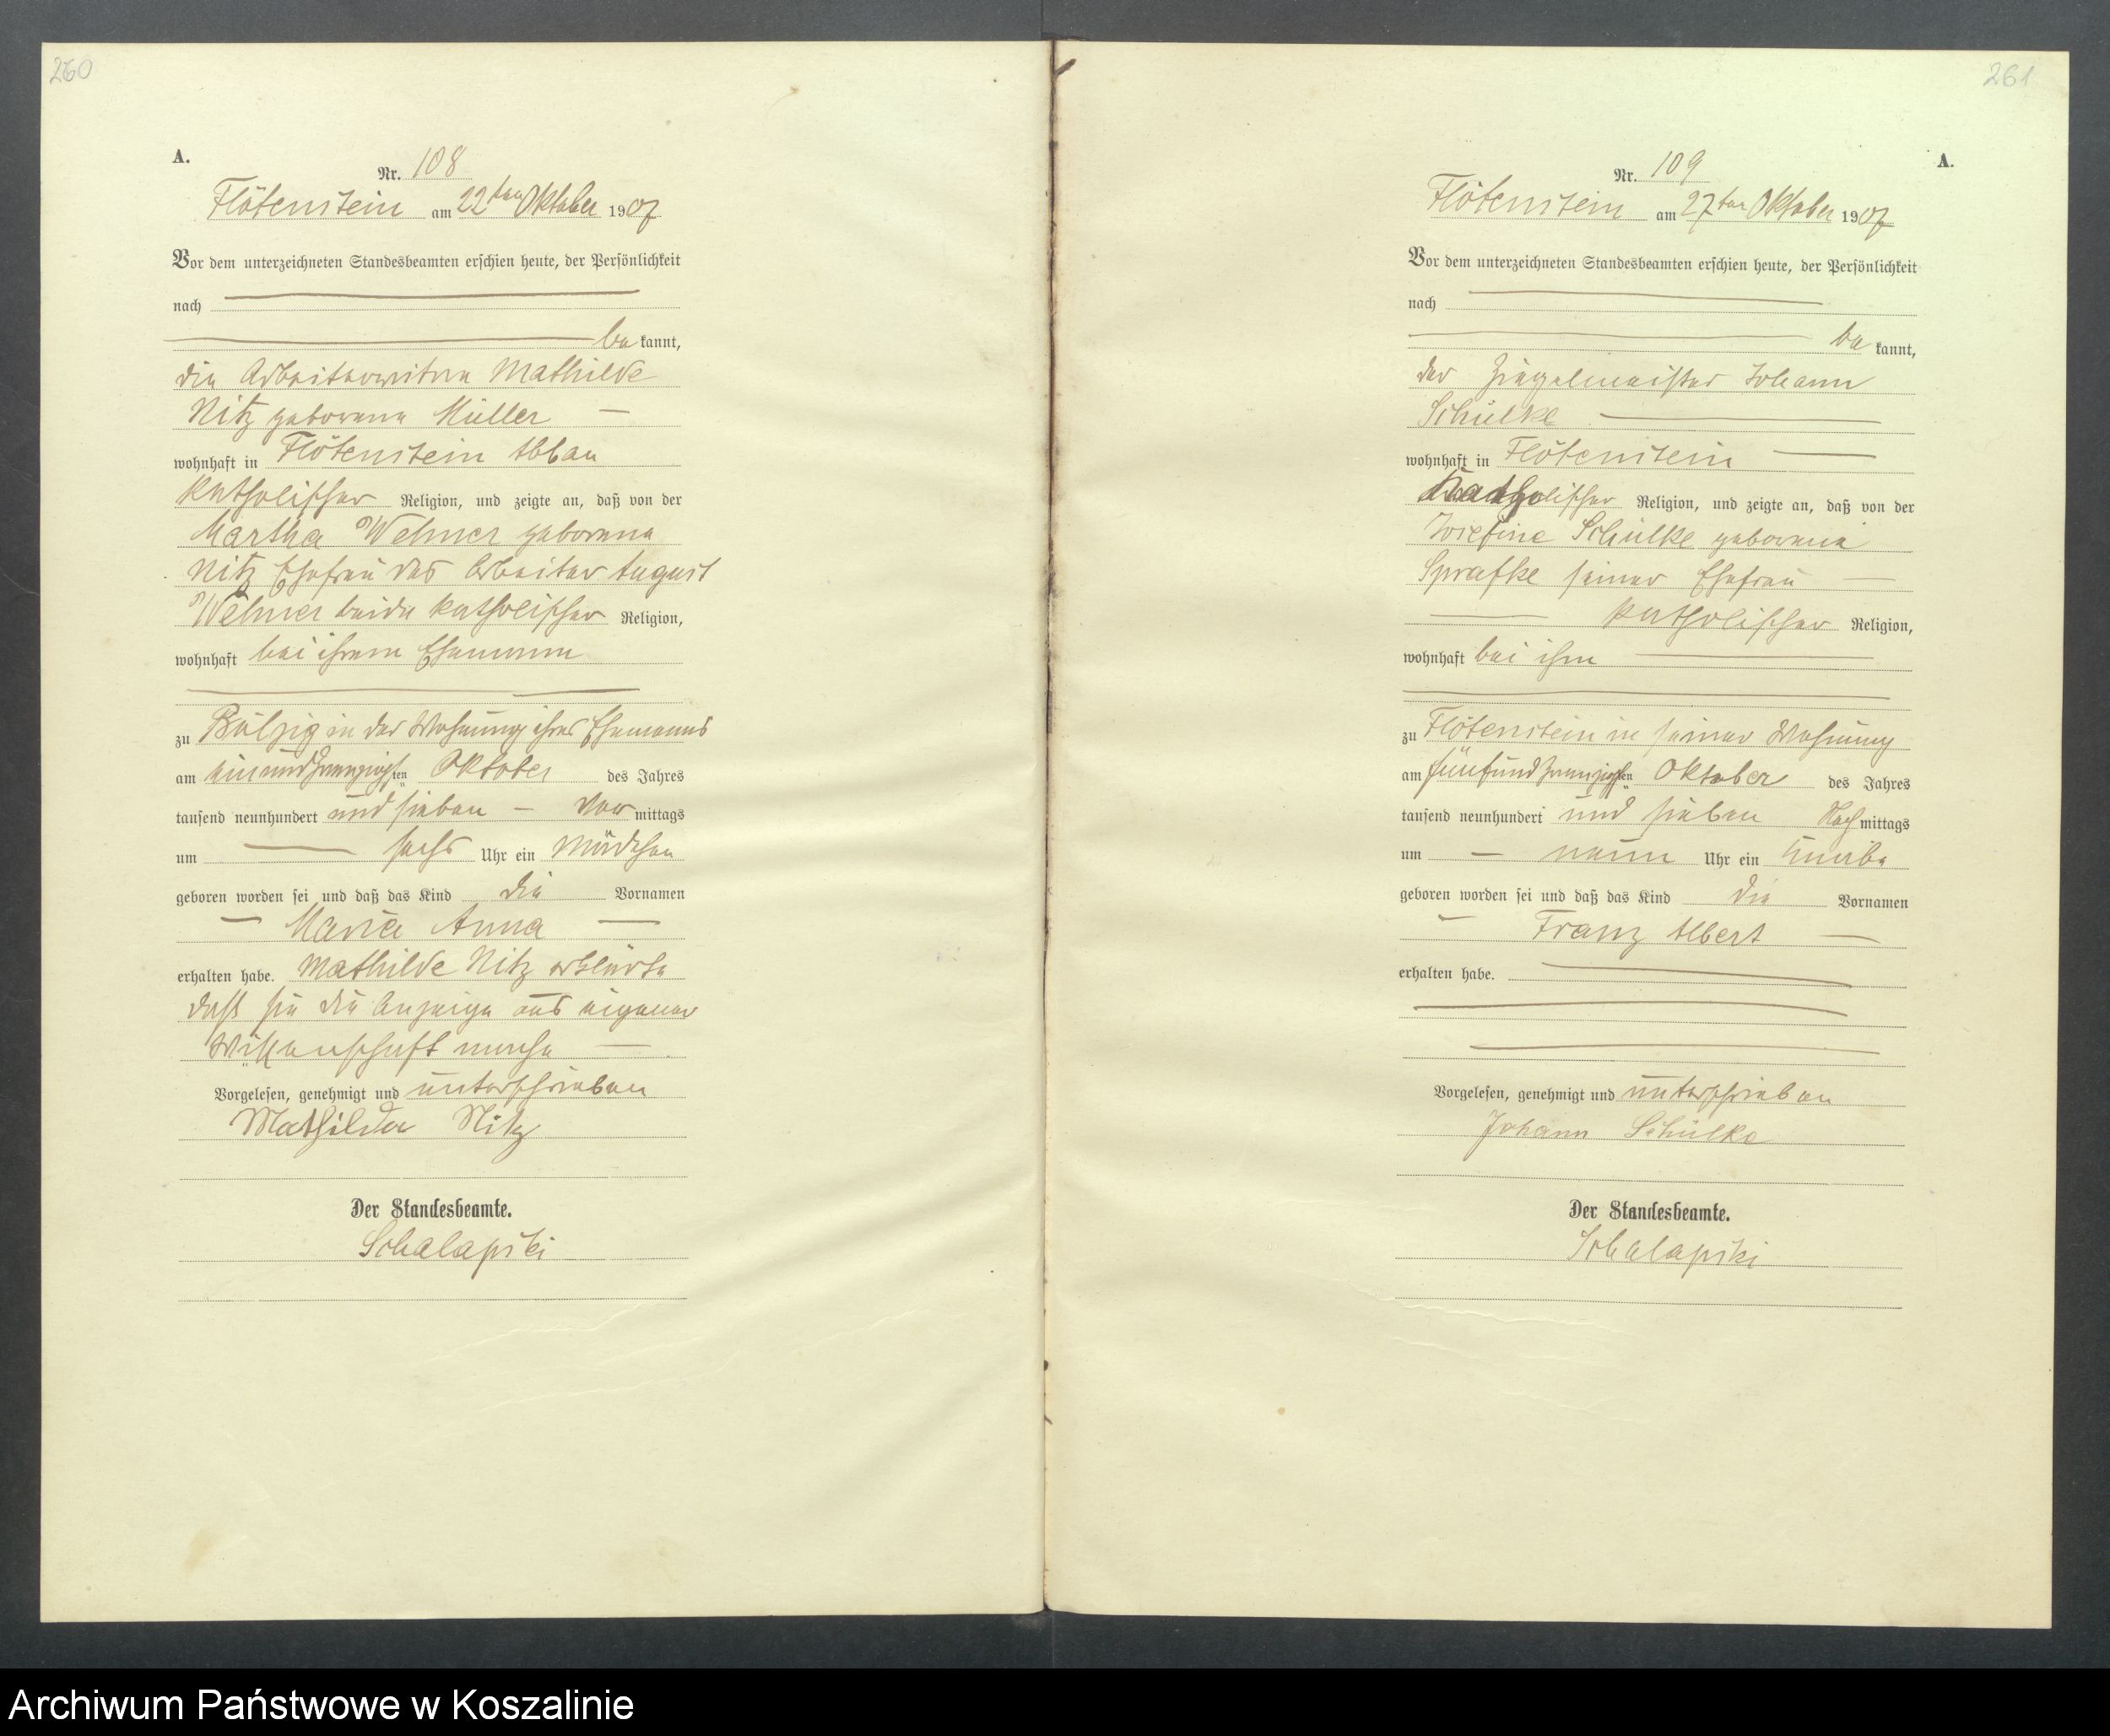 260
A.
Nr. 108
Flötenstein am 22ten Oktober 1907
Vor dem unterzeichneten Standesbeamten erschien heute, der Persönlichkeit
nach
be kannt,
die Arbeiterwitwe Mathilde
Nitz geborene Müller
wohnhaft in Flötenstein Abbau
katholischer Religion, und zeigte an, daß von der
Martha Wehner geborene
Nitz Ehefrau des Arbeiter August
Wehner beide katholischer Religion,
wohnhaft bei ihrem Ehemann
zu in der Wohnung ihres Ehemanns
am einundzwanzigsten Oktober des Jahres
tausend neunhundert und sieben Vor mittags
um sechs Uhr ein Mädchen
geboren worden sei und daß das Kind die Vornamen
Maria Anna
erhalten habe. Mathilde Nitz erklärte
daß sie die Anzeige aus eigener
Wissenschaft mache
Vorgelesen, genehmigt und unterschrieben
Mathilde Nitz
Der Standesbeamte.
Schalapski
261
A.
Nr. 109
Flötenstein am 27ten Oktober 1907
Vor dem unterzeichneten Standesbeamten erschien heute, der Persönlichkeit
nach
be kannt,
der Ziegelmeister Johann
Schülke
wohnhaft in Flötenstein
katholischer Religion, und zeigte an, daß von der
Josefine Schülke geborene
Sprafke seiner Ehefrau
katholischer Religion,
wohnhaft bei ihm
zu Flötenstein in seiner Wohnung
am fünfundzwanzigsten Oktober des Jahres
tausend neunhundert und sieben Nach mittags
um neun Uhr ein Knabe
geboren worden sei und daß das Kind die Vornamen
Franz Albert
erhalten habe.
Vorgelesen, genehmigt und unterschrieben
Johann Schülke
Der Standesbeamte.
Schalapski
Archiwum Państwowe w Koszalinie